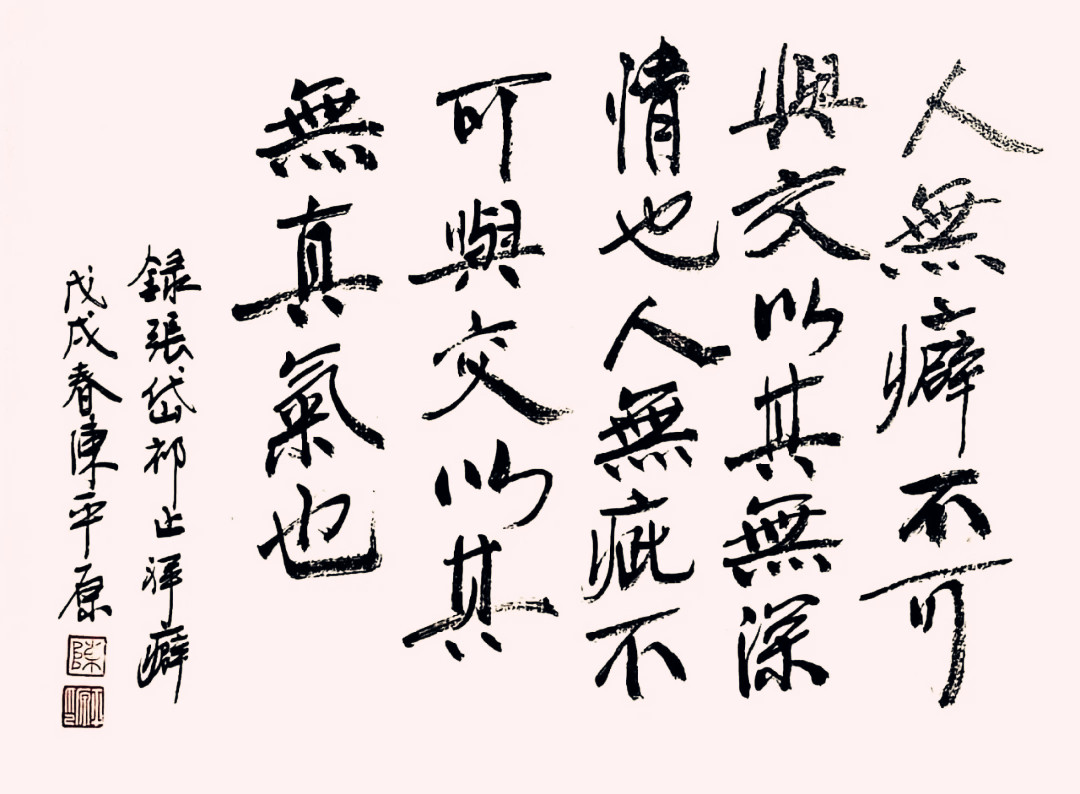 人無癖不可
與交以其無深
情也人無疵不
可與交以其
無真氣也
録張岱祁止祥癖
戊戌春陳平原